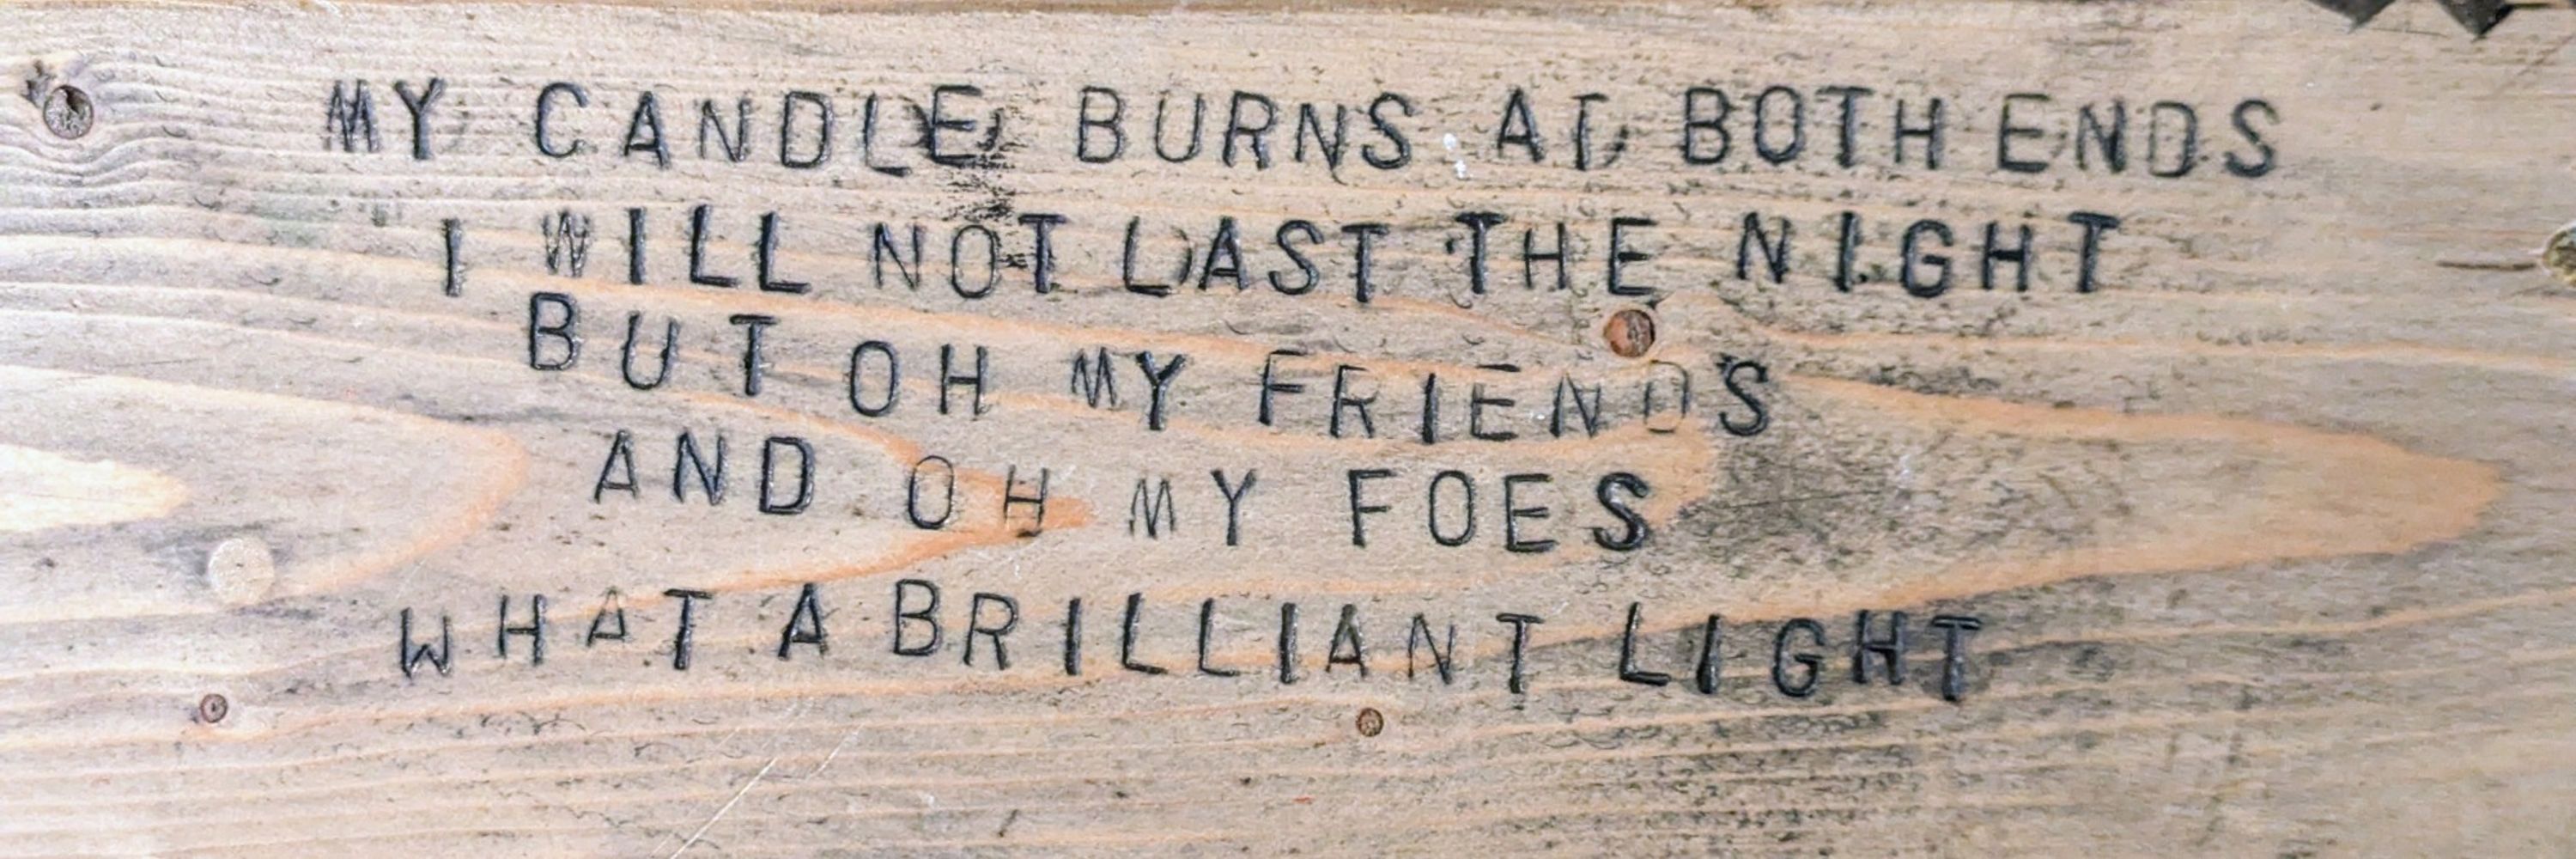 MY CANDLE BURNS AT BOTH ENDS
I WILL NOT LAST THE NIGHT
BUT OH MY FRIENDS
AND OH MY FOES
WHAT A BRILLIANT LIGHT